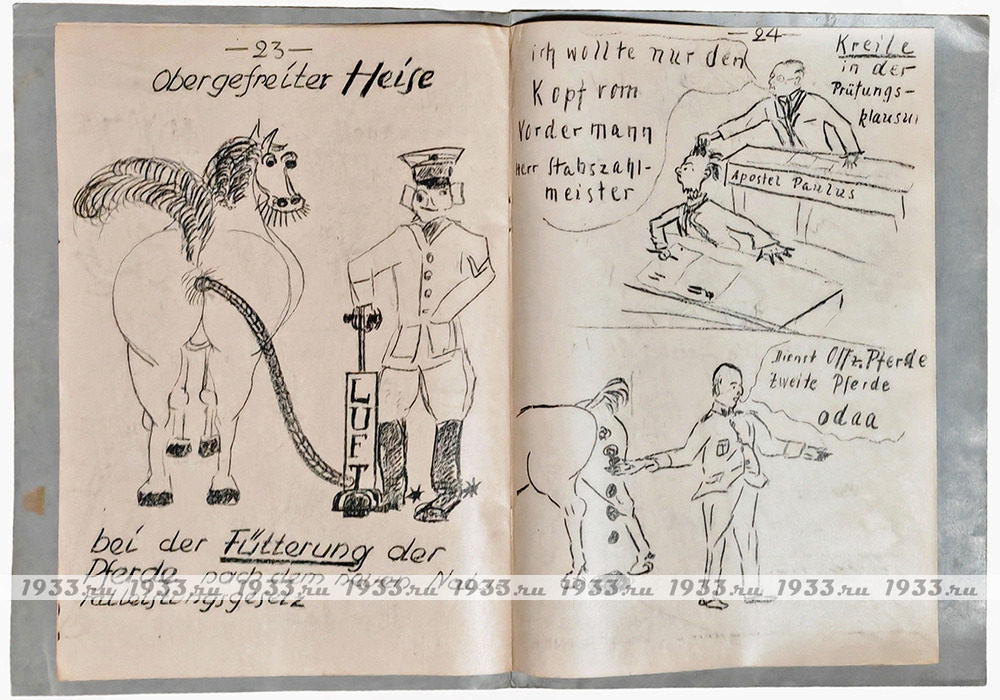 —23—
Obergefreiter Heise
LUFT
bei der Fütterung der
Pferde nach dem neuen
—24—
ich wollte nur den
Kopf vom
Vordermann
Herr Stabszahl-
meister
Kreile
in der
Prüfungs-
klausur
Apostel Paulus
Dienst Offz. Pferde
zweite Pferde
odaa
1933.ru 1933.ru 1933.ru 1933.ru 1933.ru 1933.ru 1933.ru 1933.ru 1933.ru